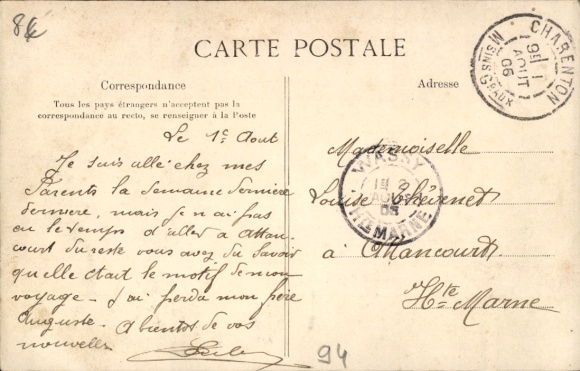 8f
CARTE POSTALE
Correspondance
Tous les pays étrangers n'acceptent pas la
correspondance au recto, se renseigner à la Poste
Adresse
CHARENTON
MSINS GPAUX
9E 1
AOUT
06
Le 1e Aout
Je suis allé chez mes
Parents la semaine dernière
dernière, mais je n'ai pas
eu le temps d'aller à Attan-
court du reste vous avez du savoir
quelle était le motif de mon
voyage - J'ai perdu mon frère
Auguste. A bientot de vos
nouvelles
Mademoiselle
Louise Thévenet
à Attancourt
Hte Marne
WASSY
2
AOUT
06
HTE MARNE
94